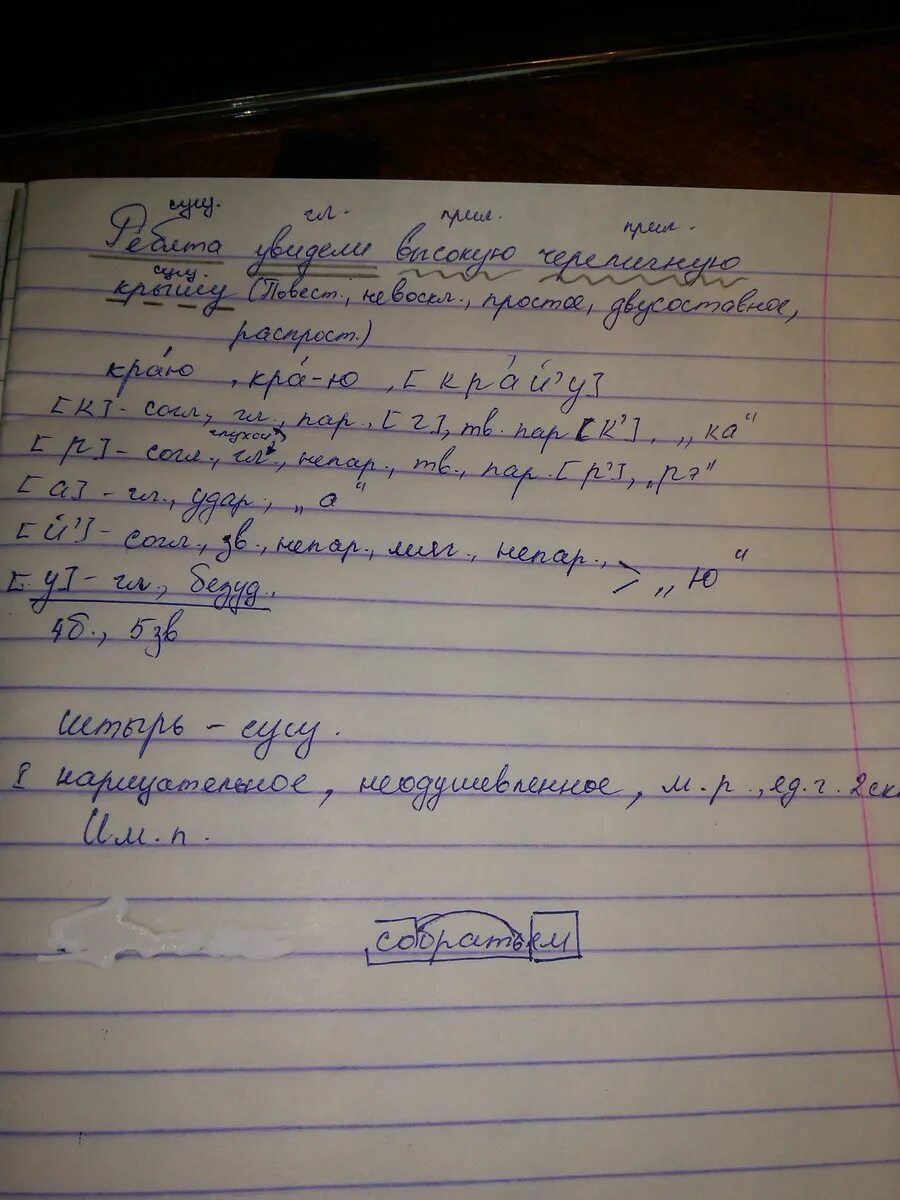 сущ. гл. прил. прил.
Ребята увидели высокую черепичную
сущ.
крышу (Повест., невоскл., простое, двусоставное,
распрост.)
кра́ю , кра́-ю , [кра́й'у]
[к] - согл., гл., пар., [г], тв. пар [к'], „ка"
глухой
[р] - согл., гл., непар., тв., пар. [р'], „рэ"
[а] - гл., удар., „а"
[й'] - согл., зв., непар., мяг., непар.,
> „ю"
[у] - гл., безуд.,
4б., 5зв
штырь - сущ.
I нарицательное, неодушевленное, м.р., ед.г. 2ск
Им.п.
собратьем